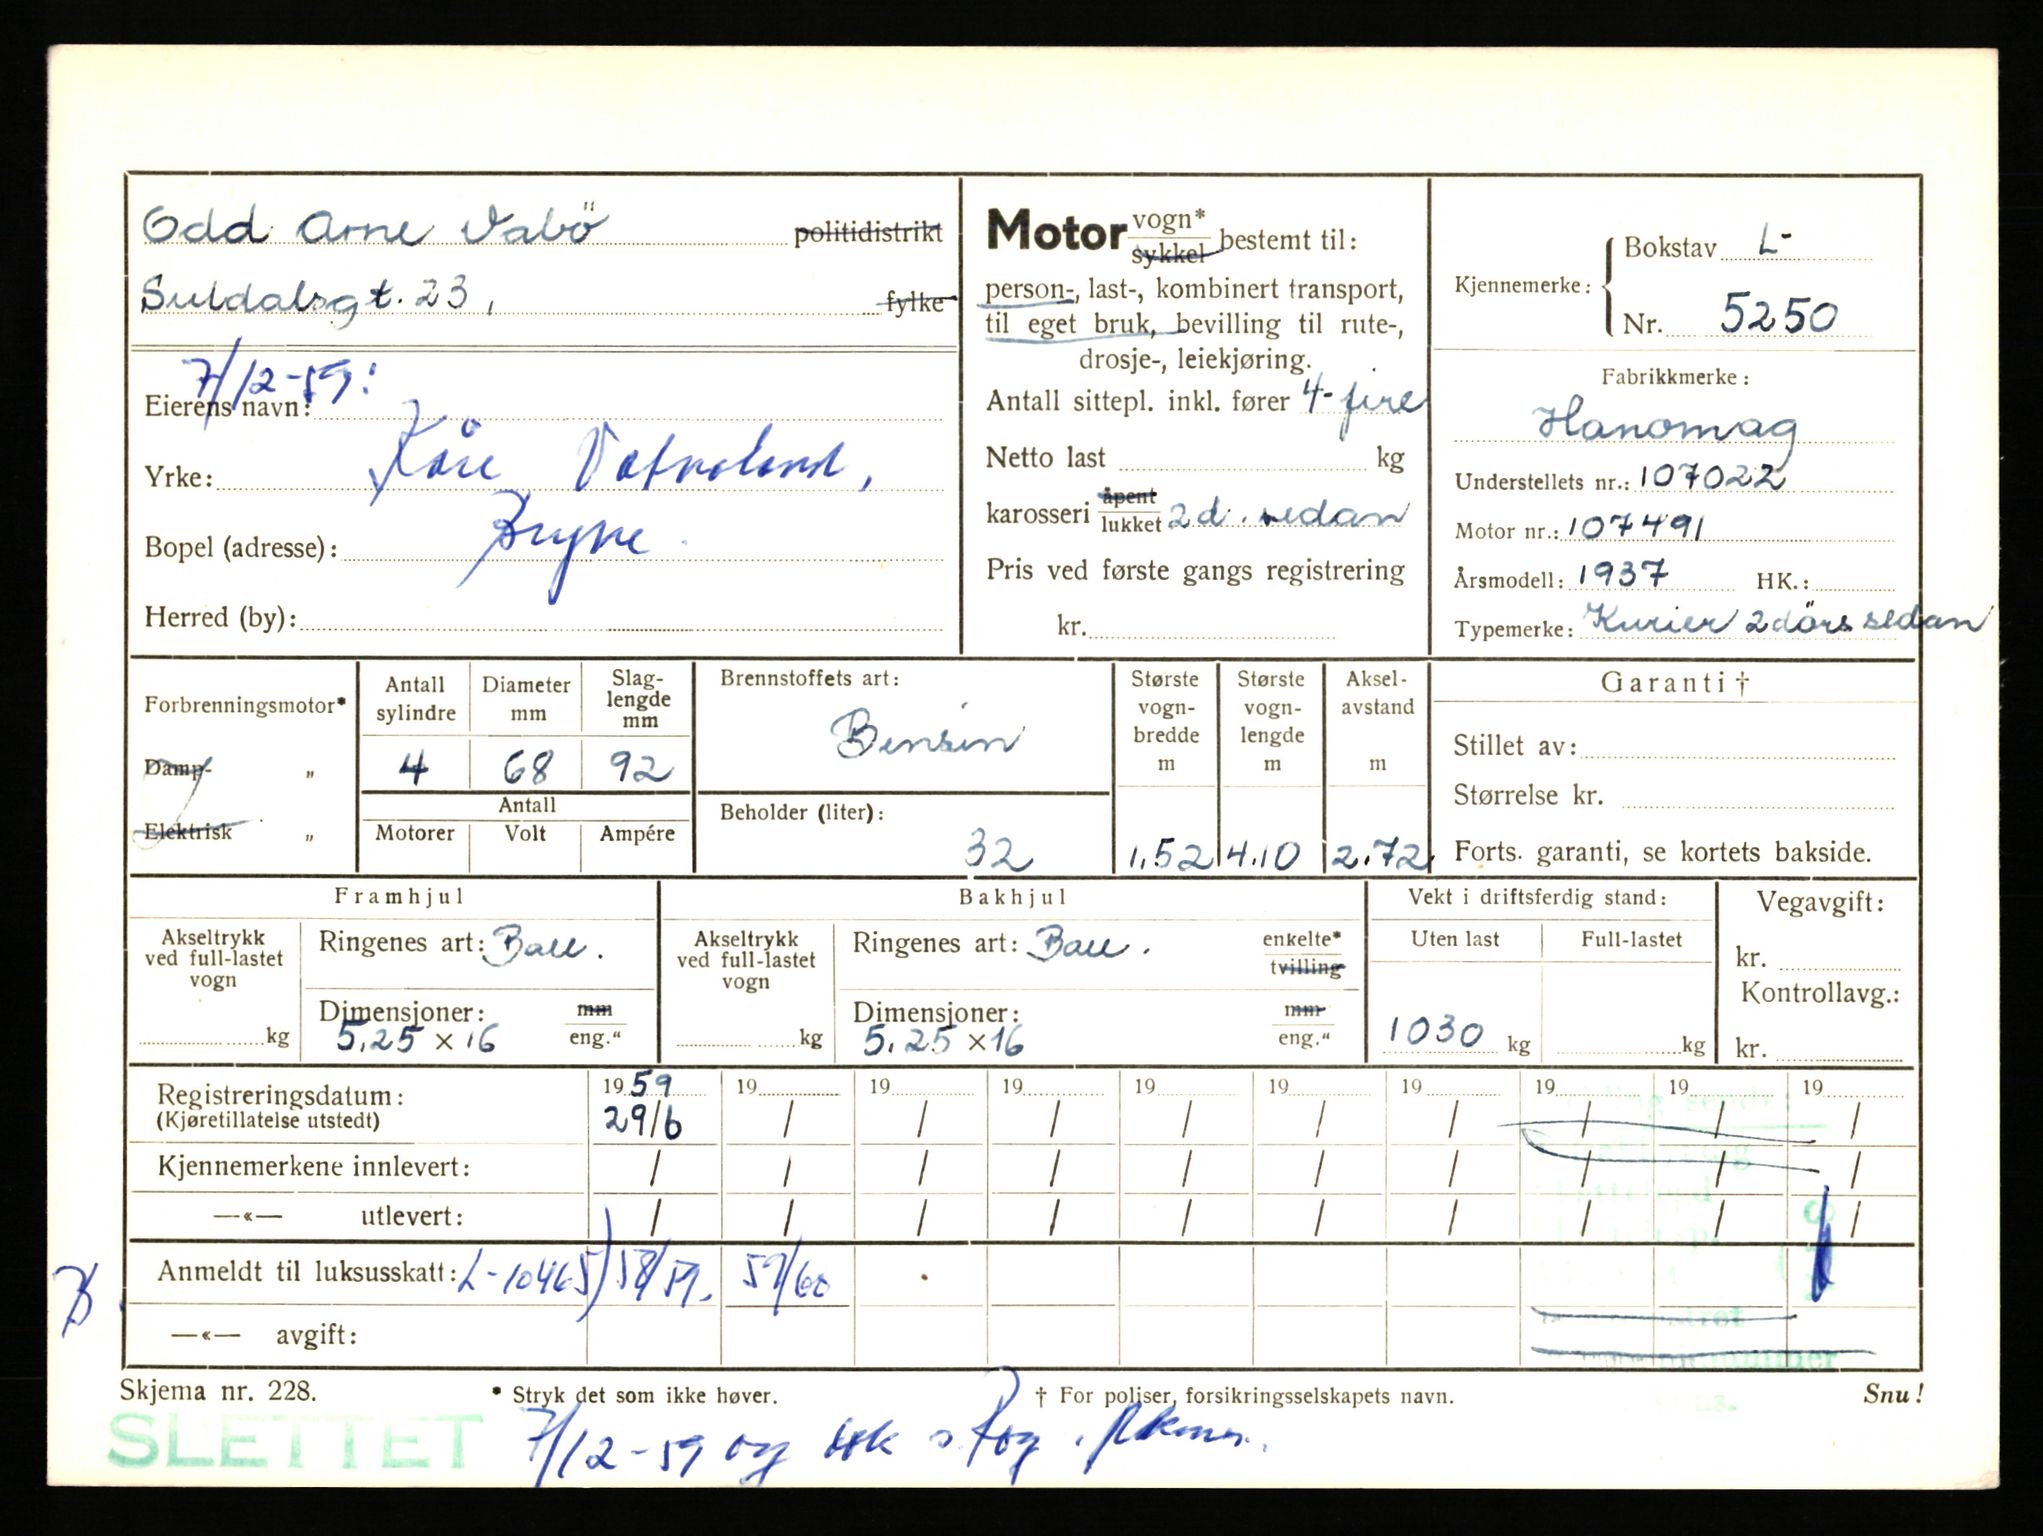 Odd Arne Vabö politidistrikt
Suldalsgt. 23, fylke
7/12-59:
Eierens navn:
Kåre Vatneland,
Yrke:
Bryne
Bopel (adresse):
Herred (by):
Motor vogn* sykkel bestemt til:
person-, last-, kombinert transport,
til eget bruk, bevilling til rute-,
drosje-, leiekjøring.
Antall sittepl. inkl. fører 4-fire
Netto last kg
karosseri åpent lukket 2d. sedan
Pris ved første gangs registrering
kr.
Kjennemerke: Bokstav L-
Nr. 5250
Fabrikkmerke:
Hanomag
Understellets nr.: 107022
Motor nr.: 107491
Årsmodell: 1937 HK.:
Typemerke: Kurier 2dörs sedan
Forbrenningsmotor*
Damp- "
Elektrisk "
Antall sylindre
4
Diameter mm
68
Slaglengde mm
92
Antall
Motorer Volt Ampére
Brennstoffets art:
Bensin
Beholder (liter):
32
Største vognbredde m
1.52
Største vognlengde m
4.10
Akselavstand m
2.72
Garanti †
Stillet av:
Størrelse kr.
Forts. garanti, se kortets bakside.
Framhjul
Akseltrykk ved full-lastet vogn
kg
Ringenes art: Ball.
Dimensjoner: mm
5.25 × 16 eng."
Bakhjul
Akseltrykk ved full-lastet vogn
kg
Ringenes art: Ball. enkelte* tvilling
Dimensjoner: mm
5.25 × 16 eng."
Vekt i driftsferdig stand:
Uten last Full-lastet
1030 kg kg
Vegavgift:
kr.
Kontrollavg.:
kr.
Registreringsdatum: 1959 19 19 19 19 19 19 19 19 19
(Kjøretillatelse utstedt) 29/6 / / / / / / / / /
Kjennemerkene innlevert: / / / / / / / / / /
—«— utlevert: / / / / / / / / / /
Anmeldt til luksusskatt: L-10465) 58/59. 59/60
—«— avgift:
Skjema nr. 228. * Stryk det som ikke høver. † For poliser, forsikringsselskapets navn. Snu!
SLETTET
7/12-59 og